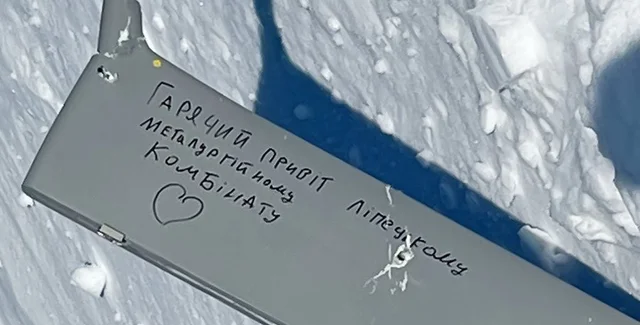 Гарячий привіт Ліпецькому
металургійному
комбінату